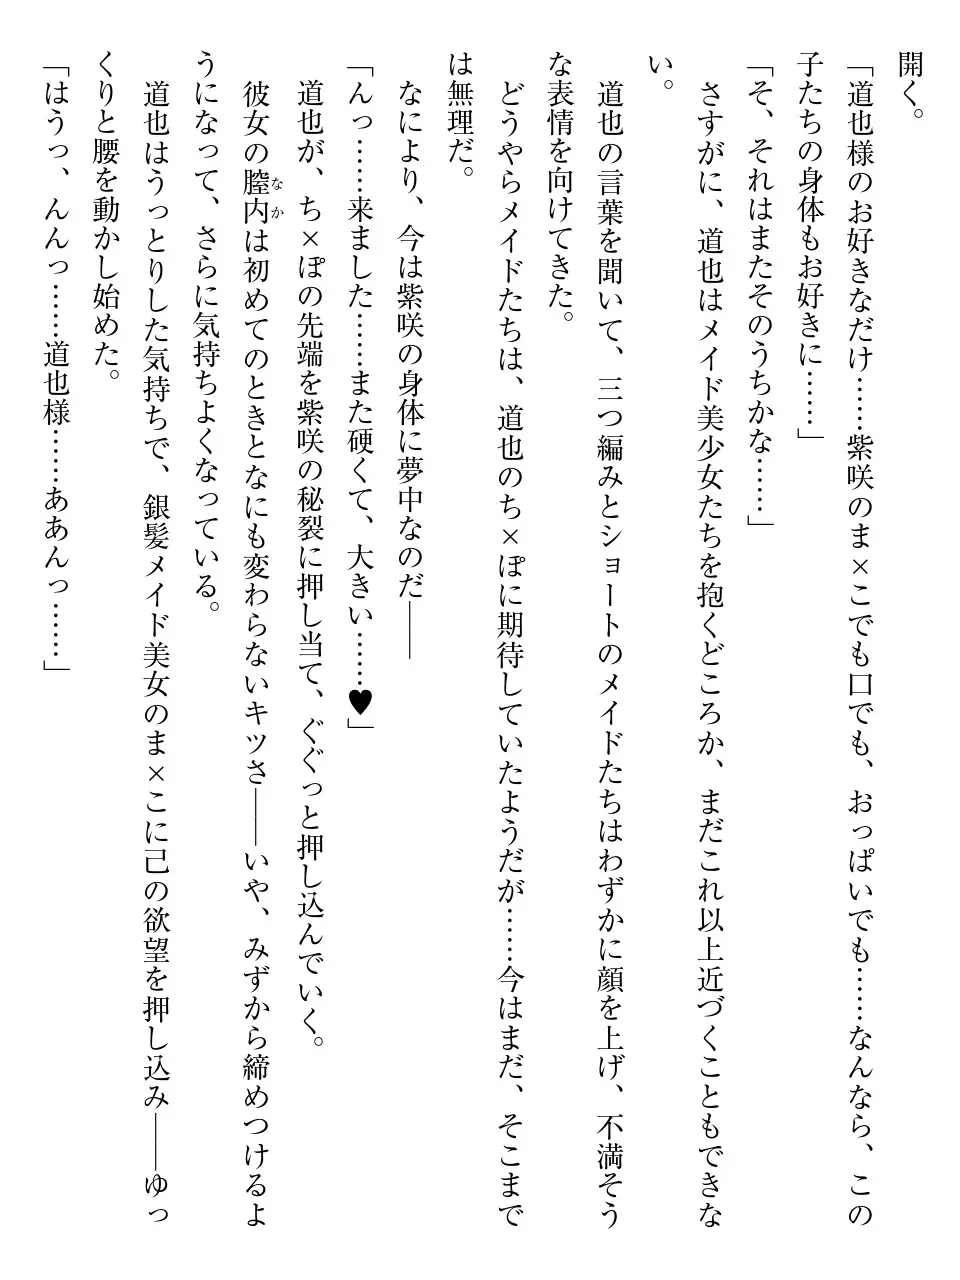 開く。
「道也様のお好きなだけ……紫咲のま×こでも口でも、おっぱいでも……なんなら、この
子たちの身体もお好きに……」
「そ、それはまたそのうちかな……」
さすがに、道也はメイド美少女たちを抱くどころか、まだこれ以上近づくこともできな
い。
道也の言葉を聞いて、三つ編みとショートのメイドたちはわずかに顔を上げ、不満そう
な表情を向けてきた。
どうやらメイドたちは、道也のち×ぽに期待していたようだが……今はまだ、そこまで
は無理だ。
なにより、今は紫咲の身体に夢中なのだ――
「んっ……来ました……また硬くて、大きい……♥」
道也が、ち×ぽの先端を紫咲の秘裂に押し当て、ぐぐっと押し込んでいく。
彼女の膣内なかは初めてのときとなにも変わらないキツさ――いや、みずから締めつけるよ
うになって、さらに気持ちよくなっている。
道也はうっとりした気持ちで、銀髪メイド美女のま×こに己の欲望を押し込み――ゆっ
くりと腰を動かし始めた。
「はうっ、んんっ……道也様……ああんっ……」